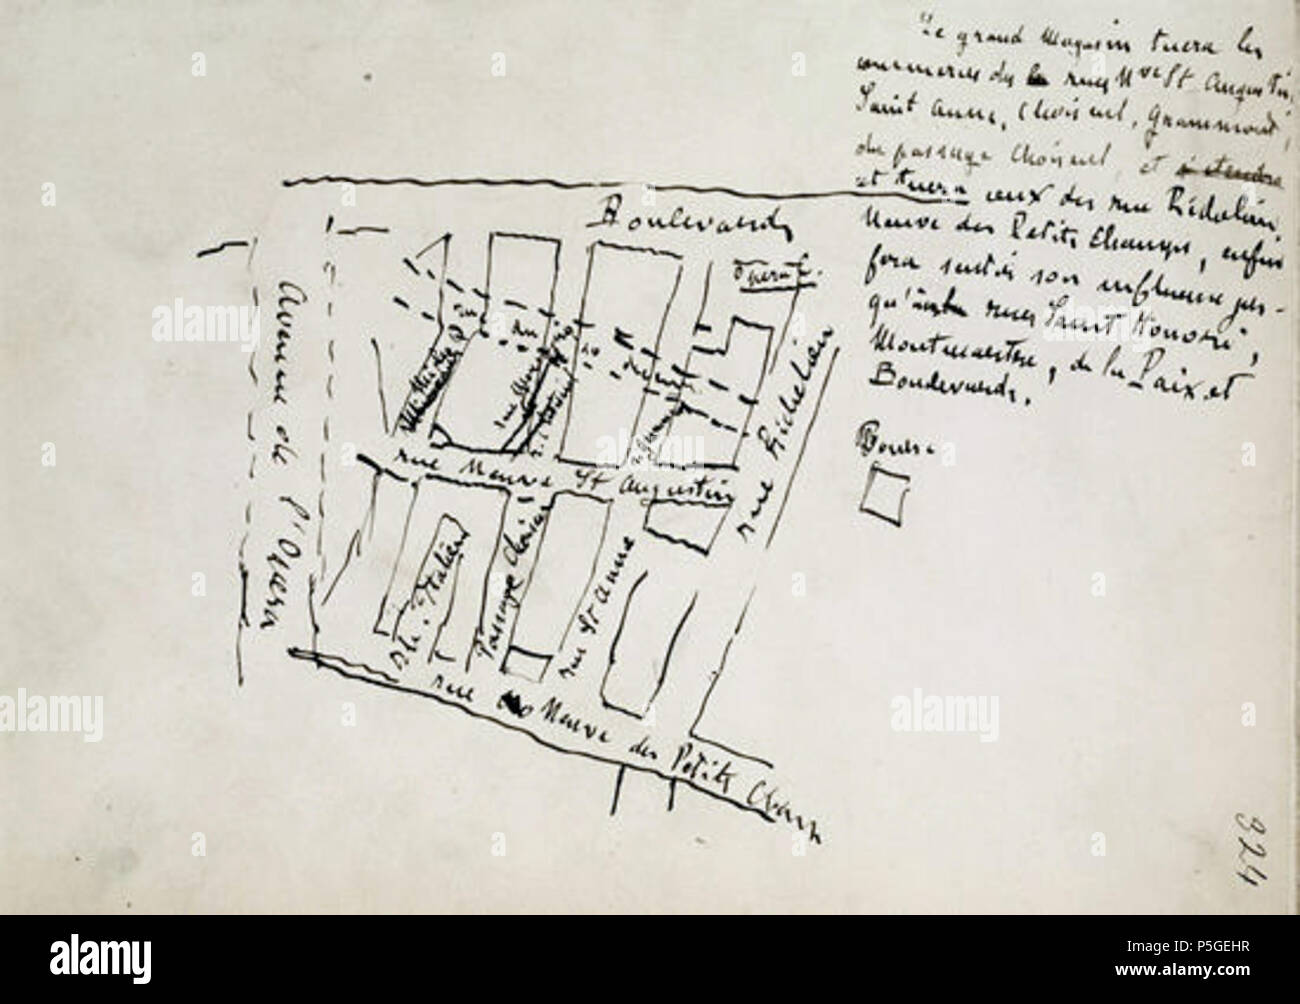 Le grand Magasin tuera les
commerces des rues Nve St Augustin,
Saint Anne, Choiseul, Grammont,
du passage Choiseul, et s'étendra
et tuera ceux des rue Richelieu,
Neuve des Petits Champs, enfin
fera sentir son influence jus-
qu'aux rues Saint Honoré,
Montmartre, de la Paix et
Boulevards.
Boulevards
Avenue de l'Opera
rue Richelieu
Bourse
rue Neuve St Augustin
Passage Choiseul
rue St Anne
rue Neuve des Petits Champs
324
alamy
alamy
Image ID: P5GEHR
www.alamy.com